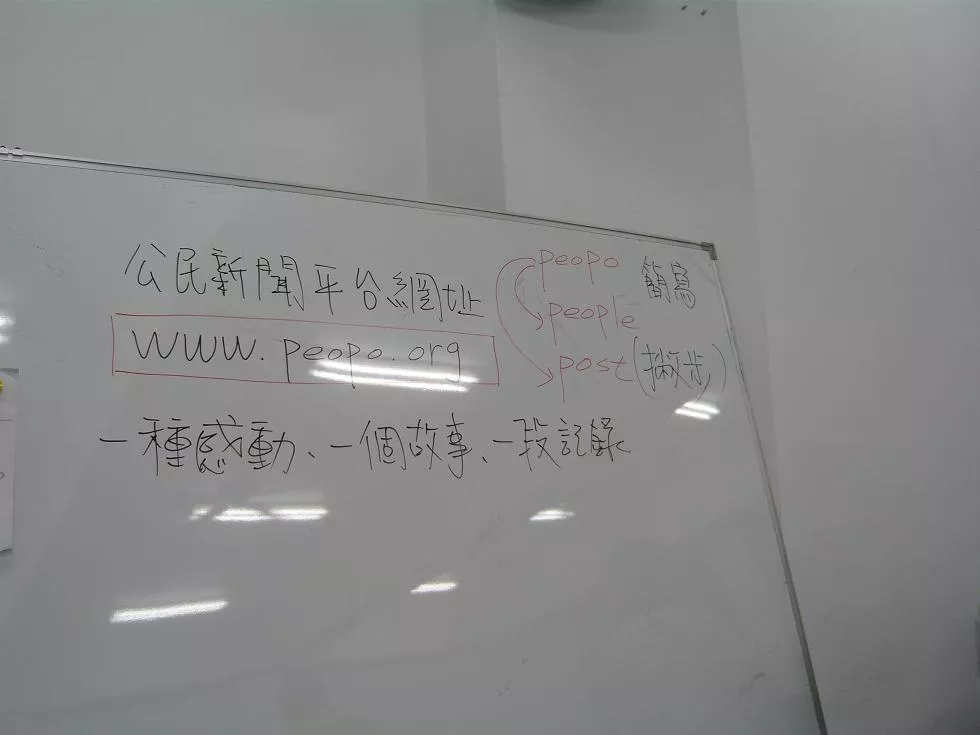 公民新聞平台網址
www.peopo.org
peopo 簡寫
people
post(撇步)
一種感動、一個故事、一段記錄